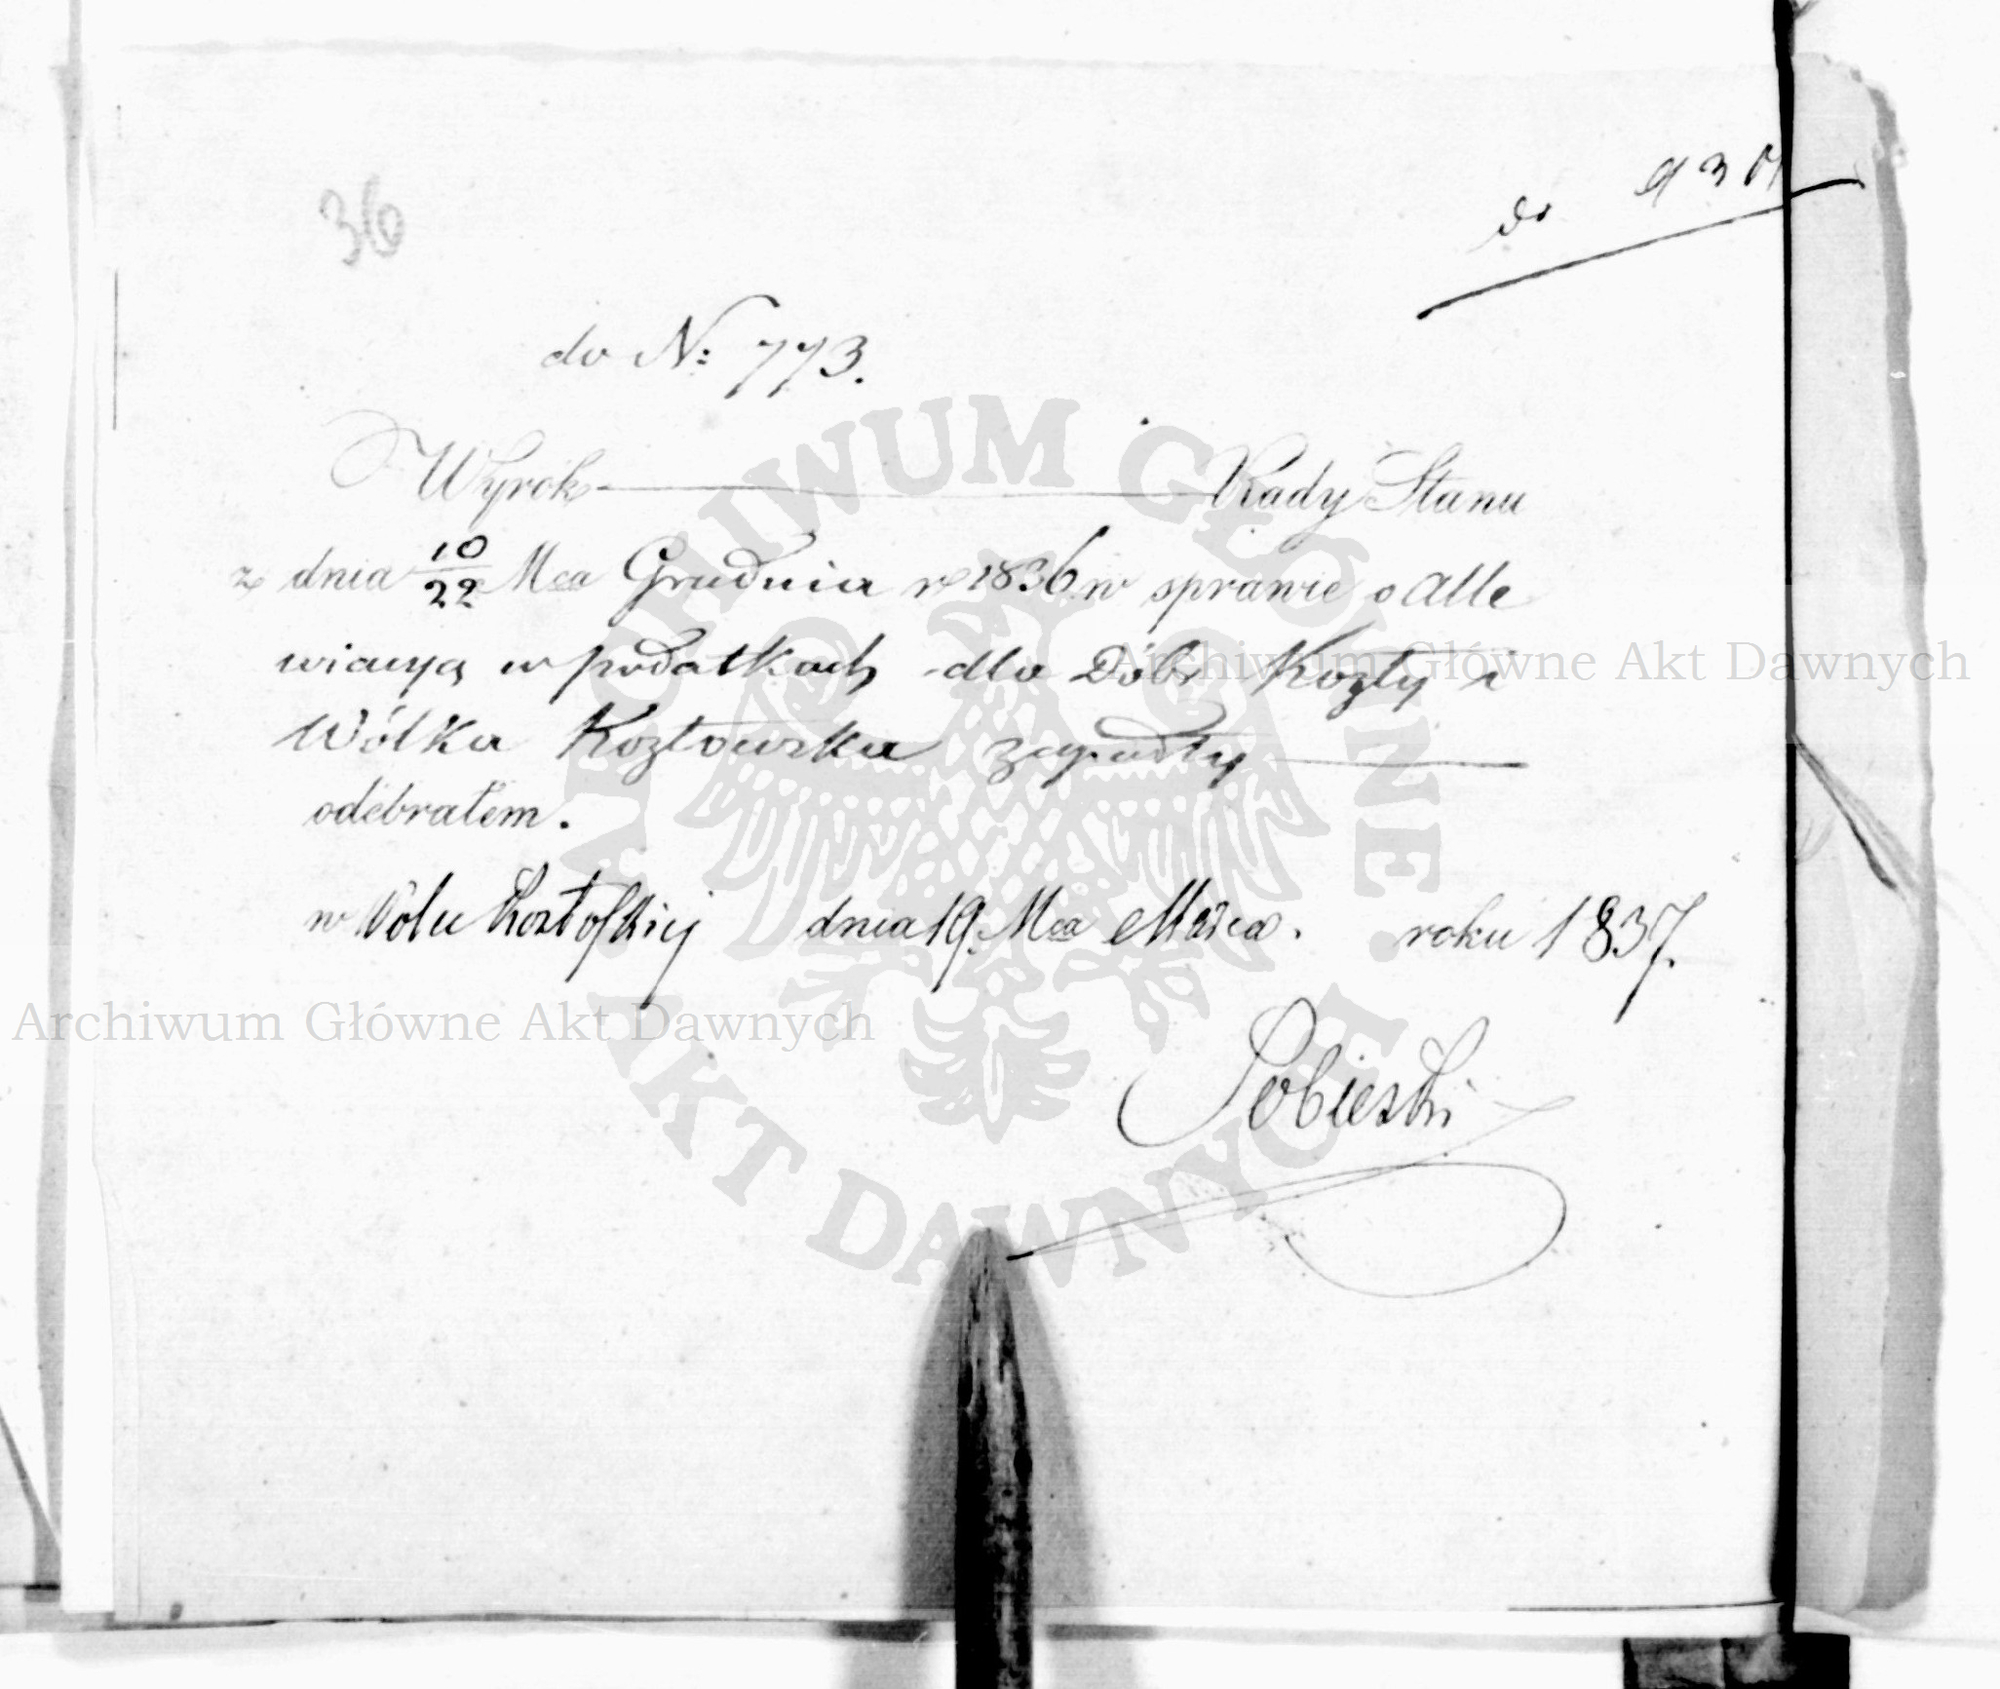 36
do 930
do N: 773.
Wyrok Rady Stanu
z dnia 10/22 Mca Grudnia r 1836 w sprawie o Alle
wiacyą w podatkach dla Dóbr Kozły i
Wólka Kozłowska zapadły
odebrałem.
w Wolce Kozłofskiej dnia 19. Mca Marca. roku 1837.
Sobieski
ARCHIWUM GŁÓWNE AKT DAWNYCH
Archiwum Główne Akt Dawnych
Archiwum Główne Akt Dawnych